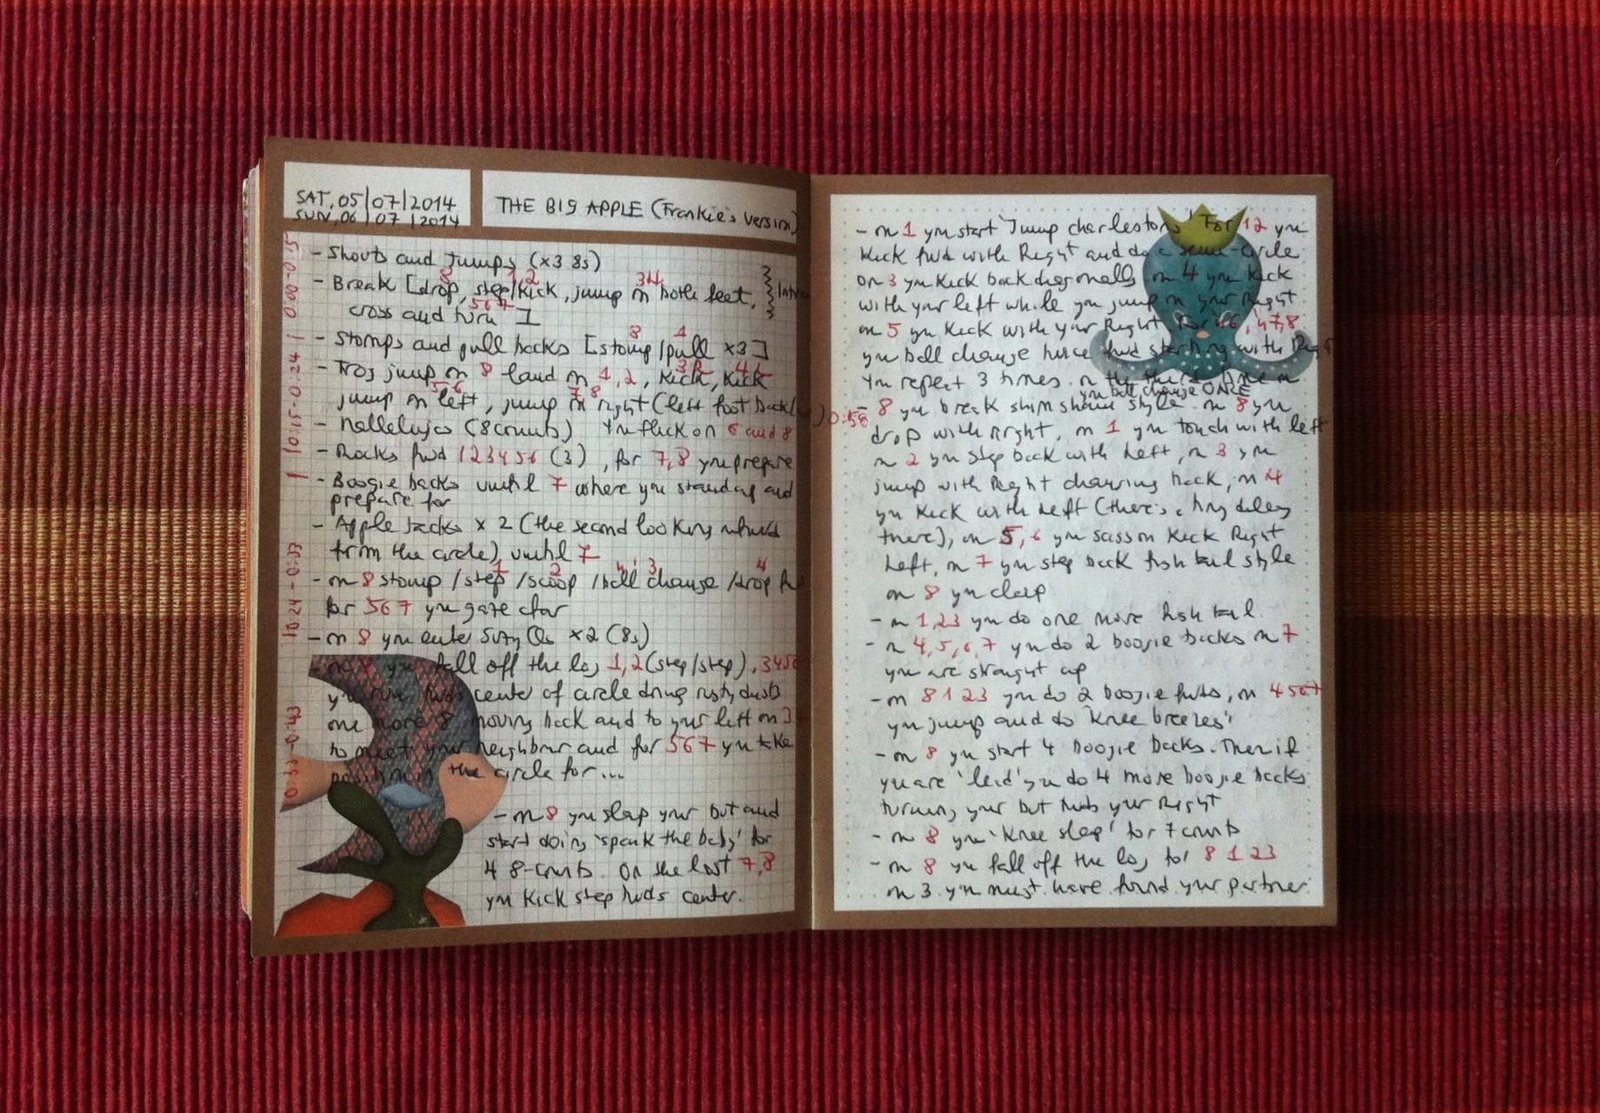 SAT, 05/07/2014
SUN, 06/07/2014
THE BIG APPLE (Frankie's version)
0:00-0:15
- Shouts and Jumps (x3 8s)
8 1,2 34
- Break [drop, step/kick, jump on both feet,
567
cross and turn ]
8 1
- Stomps and pull backs [stomp/pull x3]
0:15-0:24
3R 4L
- Frog jump on 8 land on 1,2, kick, kick
56 7 8
jump on left, jump on right (left foot back
- Hallelujas (8 counts) You flick on 6 and 8
- Rocks fwd 123456 (3), for 7,8 you prepare
- Boogie backs until 7 where you stand up and
prepare for
- Apple Jacks x 2 (the second looking
from the circle) until 7
0:24-0:33
1 2 3 4
- on 8 stomp/step/scoop/ball change/drop
for 567 you gaze afar
- on 8 you enter Suzy Qs x2 (8s)
0:33-0:43
- on 8 you fall off the log 1,2 (step/step), 345
you run twds center of circle doing rusty dusts
one more 8 moving back and to your left on 3
to meet your neighbour and for 567 you take
position in the circle for...
- on 8 you slap your but and
start doing 'spank the baby' for
4 8-counts. On the last 7,8
you kick step twds center.
- on 1 you start 'Jump charlestons' For 12 you
kick fwd with Right and do a semi-circle
on 3 you kick back diagonally on 4 you kick
with your left while you jump on your right
on 5 you kick with your Right for '46', '47,8'
you ball change twice fwd starting with Right
You repeat 3 times. on the third time on
you ball change ONCE
0:58
- 8 you break shim sham style. on 8 you
drop with right, on 1 you touch with left
on 2 you step back with Left, on 3 you
jump with Right back, on 4
you kick with Left (there's a tiny delay
there), on 5,6 you kick Right
Left, on 7 you step back fish tail style
on 8 you clap
- on 1,23 you do one more fish tail
- on 4,5,6,7 you do 2 boogie backs on 7
you are straight up
- on 8 1 2 3 you do 2 boogie fwds, on 4567
you jump and do 'knee breezes'
- on 8 you start 4 boogie backs. Then if
you are 'lead' you do 4 more boogie backs
turning your but twds your right
- on 8 you 'knee slap' for 7 counts
- on 8 you fall off the log for 8 1 2 3
on 3 you must have found your partner